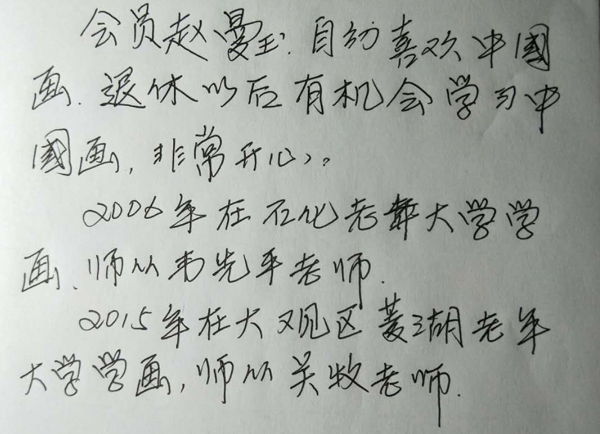 会员赵曼玉.自幼喜欢中國
画.退休以后有机会学习中
國画,非常开心。
2006年在石化老年大学学
画.师从韦先平老师.
2015年在大观区菱湖老年
大学学画,师从吴牧老师.